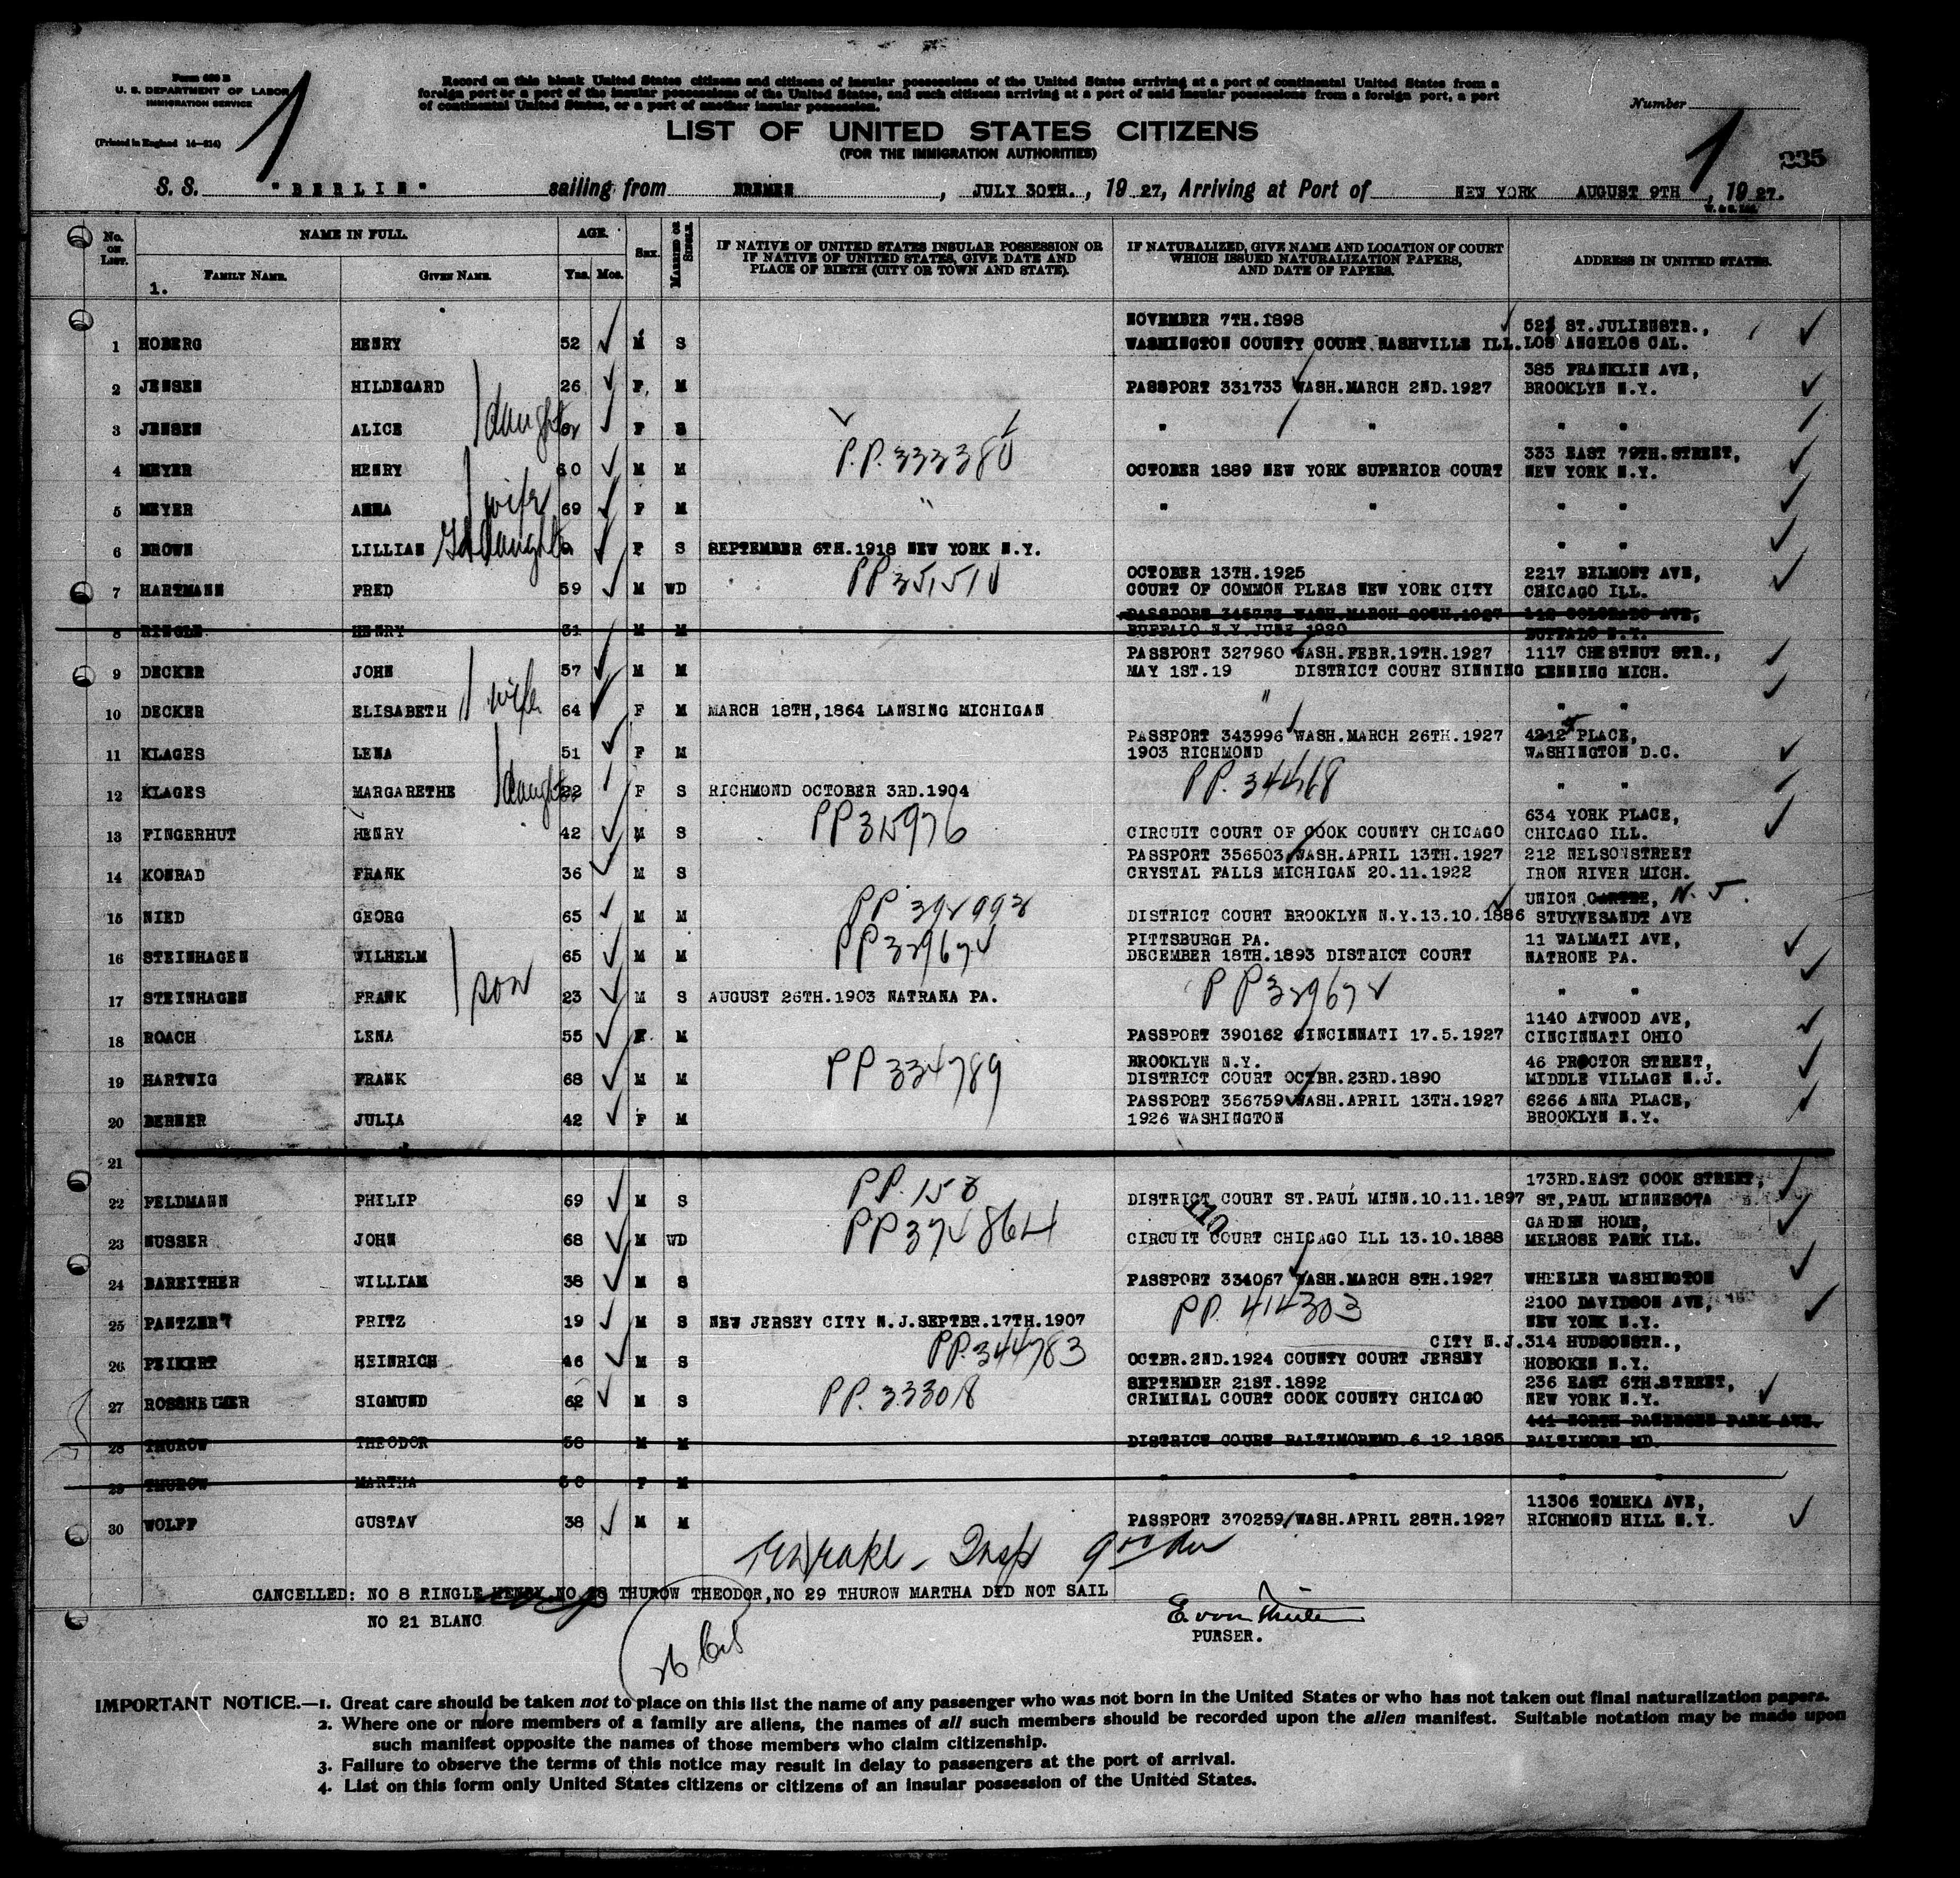 Form 630 B
U. S. DEPARTMENT OF LABOR
IMMIGRATION SERVICE
(Printed in England 14—214)
1
Record on this blank United States citizens and citizens of insular possessions of the United States arriving at a port of continental United States from a
foreign port or a port of the insular possessions of the United States, and such citizens arriving at a port of said insular possessions from a foreign port, a port
of continental United States, or a port of another insular possession.
Number
LIST OF UNITED STATES CITIZENS
(FOR THE IMMIGRATION AUTHORITIES)
1
235
S. S. "BERLIN" sailing from BREMEN, JULY 30TH., 1927, Arriving at Port of NEW YORK AUGUST 9TH, 1927.
No. ON LIST. NAME IN FULL. AGE. SEX. MARRIED OR SINGLE. IF NATIVE OF UNITED STATES INSULAR POSSESSION OR IF NATIVE OF UNITED STATES, GIVE DATE AND PLACE OF BIRTH (CITY OR TOWN AND STATE). IF NATURALIZED, GIVE NAME AND LOCATION OF COURT WHICH ISSUED NATURALIZATION PAPERS, AND DATE OF PAPERS. ADDRESS IN UNITED STATES.
FAMILY NAME. GIVEN NAME. Yrs. Mos.
1.
NOVEMBER 7TH.1898 ST.JULIENSTR.,
1 HOBERG HENRY 52 M S WASHINGTON COUNTY COURT NASHVILLE ILL. LOS ANGELOS CAL.
385 FRANKLIN AVE,
2 JENSEN HILDEGARD 26 F M PASSPORT 331733 WASH.MARCH 2ND.1927 BROOKLYN N.Y.
3 JENSEN ALICE daught F S " " " "
P.P. 333380 333 EAST 79TH.STREET,
4 MEYER HENRY 60 M M OCTOBER 1889 NEW YORK SUPERIOR COURT NEW YORK N.Y.
5 MEYER ANNA wife 69 F M " " " " "
6 BROWN LILLIAN Gd daught F S SEPTEMBER 6TH.1918 NEW YORK N.Y. " "
OCTOBER 13TH.1925 2217 BELMONT AVE,
7 HARTMANN FRED 59 M WD COURT OF COMMON PLEAS NEW YORK CITY CHICAGO ILL.
8 RINGLE HENRY 31 M M BUFFALO N.Y.JUNE 1920 BUFFALO N.Y.
PASSPORT 327960 WASH.FEBR.19TH.1927 1117 CHESTNUT STR.,
9 DECKER JOHN 57 M M MAY 1ST.19 DISTRICT COURT SINNING KENNING MICH.
10 DECKER ELISABETH wife 64 F M MARCH 18TH,1864 LANSING MICHIGAN " " "
PASSPORT 343996 WASH.MARCH 26TH.1927 4212 PLACE,
11 KLAGES LENA 51 F M 1903 RICHMOND WASHINGTON D.C.
12 KLAGES MARGARETHE daught 22 F S RICHMOND OCTOBER 3RD.1904 PP. 34468 " "
PP 315976 634 YORK PLACE,
13 FINGERHUT HENRY 42 M S CIRCUIT COURT OF COOK COUNTY CHICAGO CHICAGO ILL.
PASSPORT 356503 WASH.APRIL 13TH.1927 212 NELSONSTREET
14 KONRAD FRANK 36 M S CRYSTAL FALLS MICHIGAN 20.11.1922 IRON RIVER MICH.
UNION N. J.
15 NIED GEORG 65 M M DISTRICT COURT BROOKLYN N.Y.13.10.1886 STUYVESANDT AVE
PITTSBURGH PA. 11 WALMATI AVE,
16 STEINHAGEN WILHELM 65 M M DECEMBER 18TH.1893 DISTRICT COURT NATRONE PA.
17 STEINHAGEN FRANK son 23 M S AUGUST 26TH.1903 NATRANA PA. " "
1140 ATWOOD AVE,
18 ROACH LENA 55 F M PASSPORT 390162 CINCINNATI 17.5.1927 CINCINNATI OHIO
PP 334789 BROOKLYN N.Y. 46 PROCTOR STREET,
19 HARTWIG FRANK 68 M M DISTRICT COURT OCTBR.23RD.1890 MIDDLE VILLAGE N.J.
PASSPORT 356759 WASH.APRIL 13TH.1927 6266 ANNA PLACE,
20 BERNER JULIA 42 F M 1926 WASHINGTON BROOKLYN N.Y.
21
173RD.EAST COOK STREET,
22 FELDMANN PHILIP 69 M S DISTRICT COURT ST.PAUL MINN.10.11.1897 ST,PAUL MINNESOTA
110 GARDEN HOME,
23 NUSSER JOHN 68 M WD CIRCUIT COURT CHICAGO ILL 13.10.1888 MELROSE PARK ILL.
24 BAREITHER WILLIAM 38 M S PASSPORT 334067 WASH.MARCH 8TH.1927 WHEELER WASHINGTON
PP. 414303 2100 DAVIDSON AVE,
25 PANTZER FRITZ 19 M S NEW JERSEY CITY N.J.SEPTBR.17TH.1907 NEW YORK N.Y.
PP. 344783 CITY N.J. 314 HUDSONSTR.,
26 PEIKERT HEINRICH 46 M S OCTBR.2ND.1924 COUNTY COURT JERSEY HOBOKEN N.Y.
PP. 33308 SEPTEMBER 21ST.1892 236 EAST 6TH.STREET,
27 ROSSHEIMER SIGMUND 62 M S CRIMINAL COURT COOK COUNTY CHICAGO NEW YORK N.Y.
28 THUROW THEODOR 58 M M DISTRICT COURT BALTIMOREMD.6.12.1895 BALTIMORE MD.
29 THUROW MARTHA F M " " " "
11306 TOMEKA AVE,
30 WOLFF GUSTAV 38 M M PASSPORT 370259 WASH.APRIL 28TH.1927 RICHMOND HILL N.Y.
Insp
CANCELLED: NO 8 RINGLE HENRY,NO 28 THUROW THEODOR,NO 29 THUROW MARTHA DID NOT SAIL
NO 21 BLANC
PURSER.
IMPORTANT NOTICE.—1. Great care should be taken not to place on this list the name of any passenger who was not born in the United States or who has not taken out final naturalization papers.
2. Where one or more members of a family are aliens, the names of all such members should be recorded upon the alien manifest. Suitable notation may be made upon
such manifest opposite the names of those members who claim citizenship.
3. Failure to observe the terms of this notice may result in delay to passengers at the port of arrival.
4. List on this form only United States citizens or citizens of an insular possession of the United States.